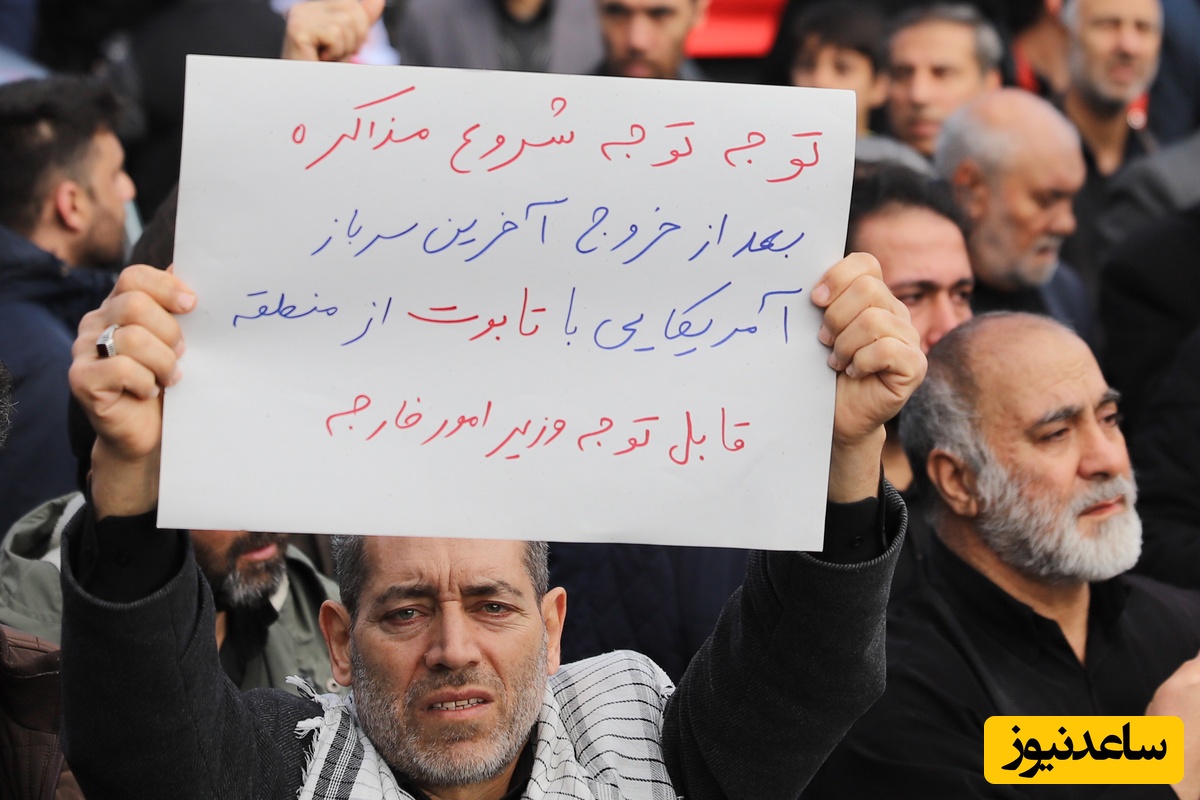 توجه توجه شروع مذاکره
بعد از خروج آخرین سرباز
آمریکایی با تابوت از منطقه
قابل توجه وزیر امور خارجه
ساعدنیوز